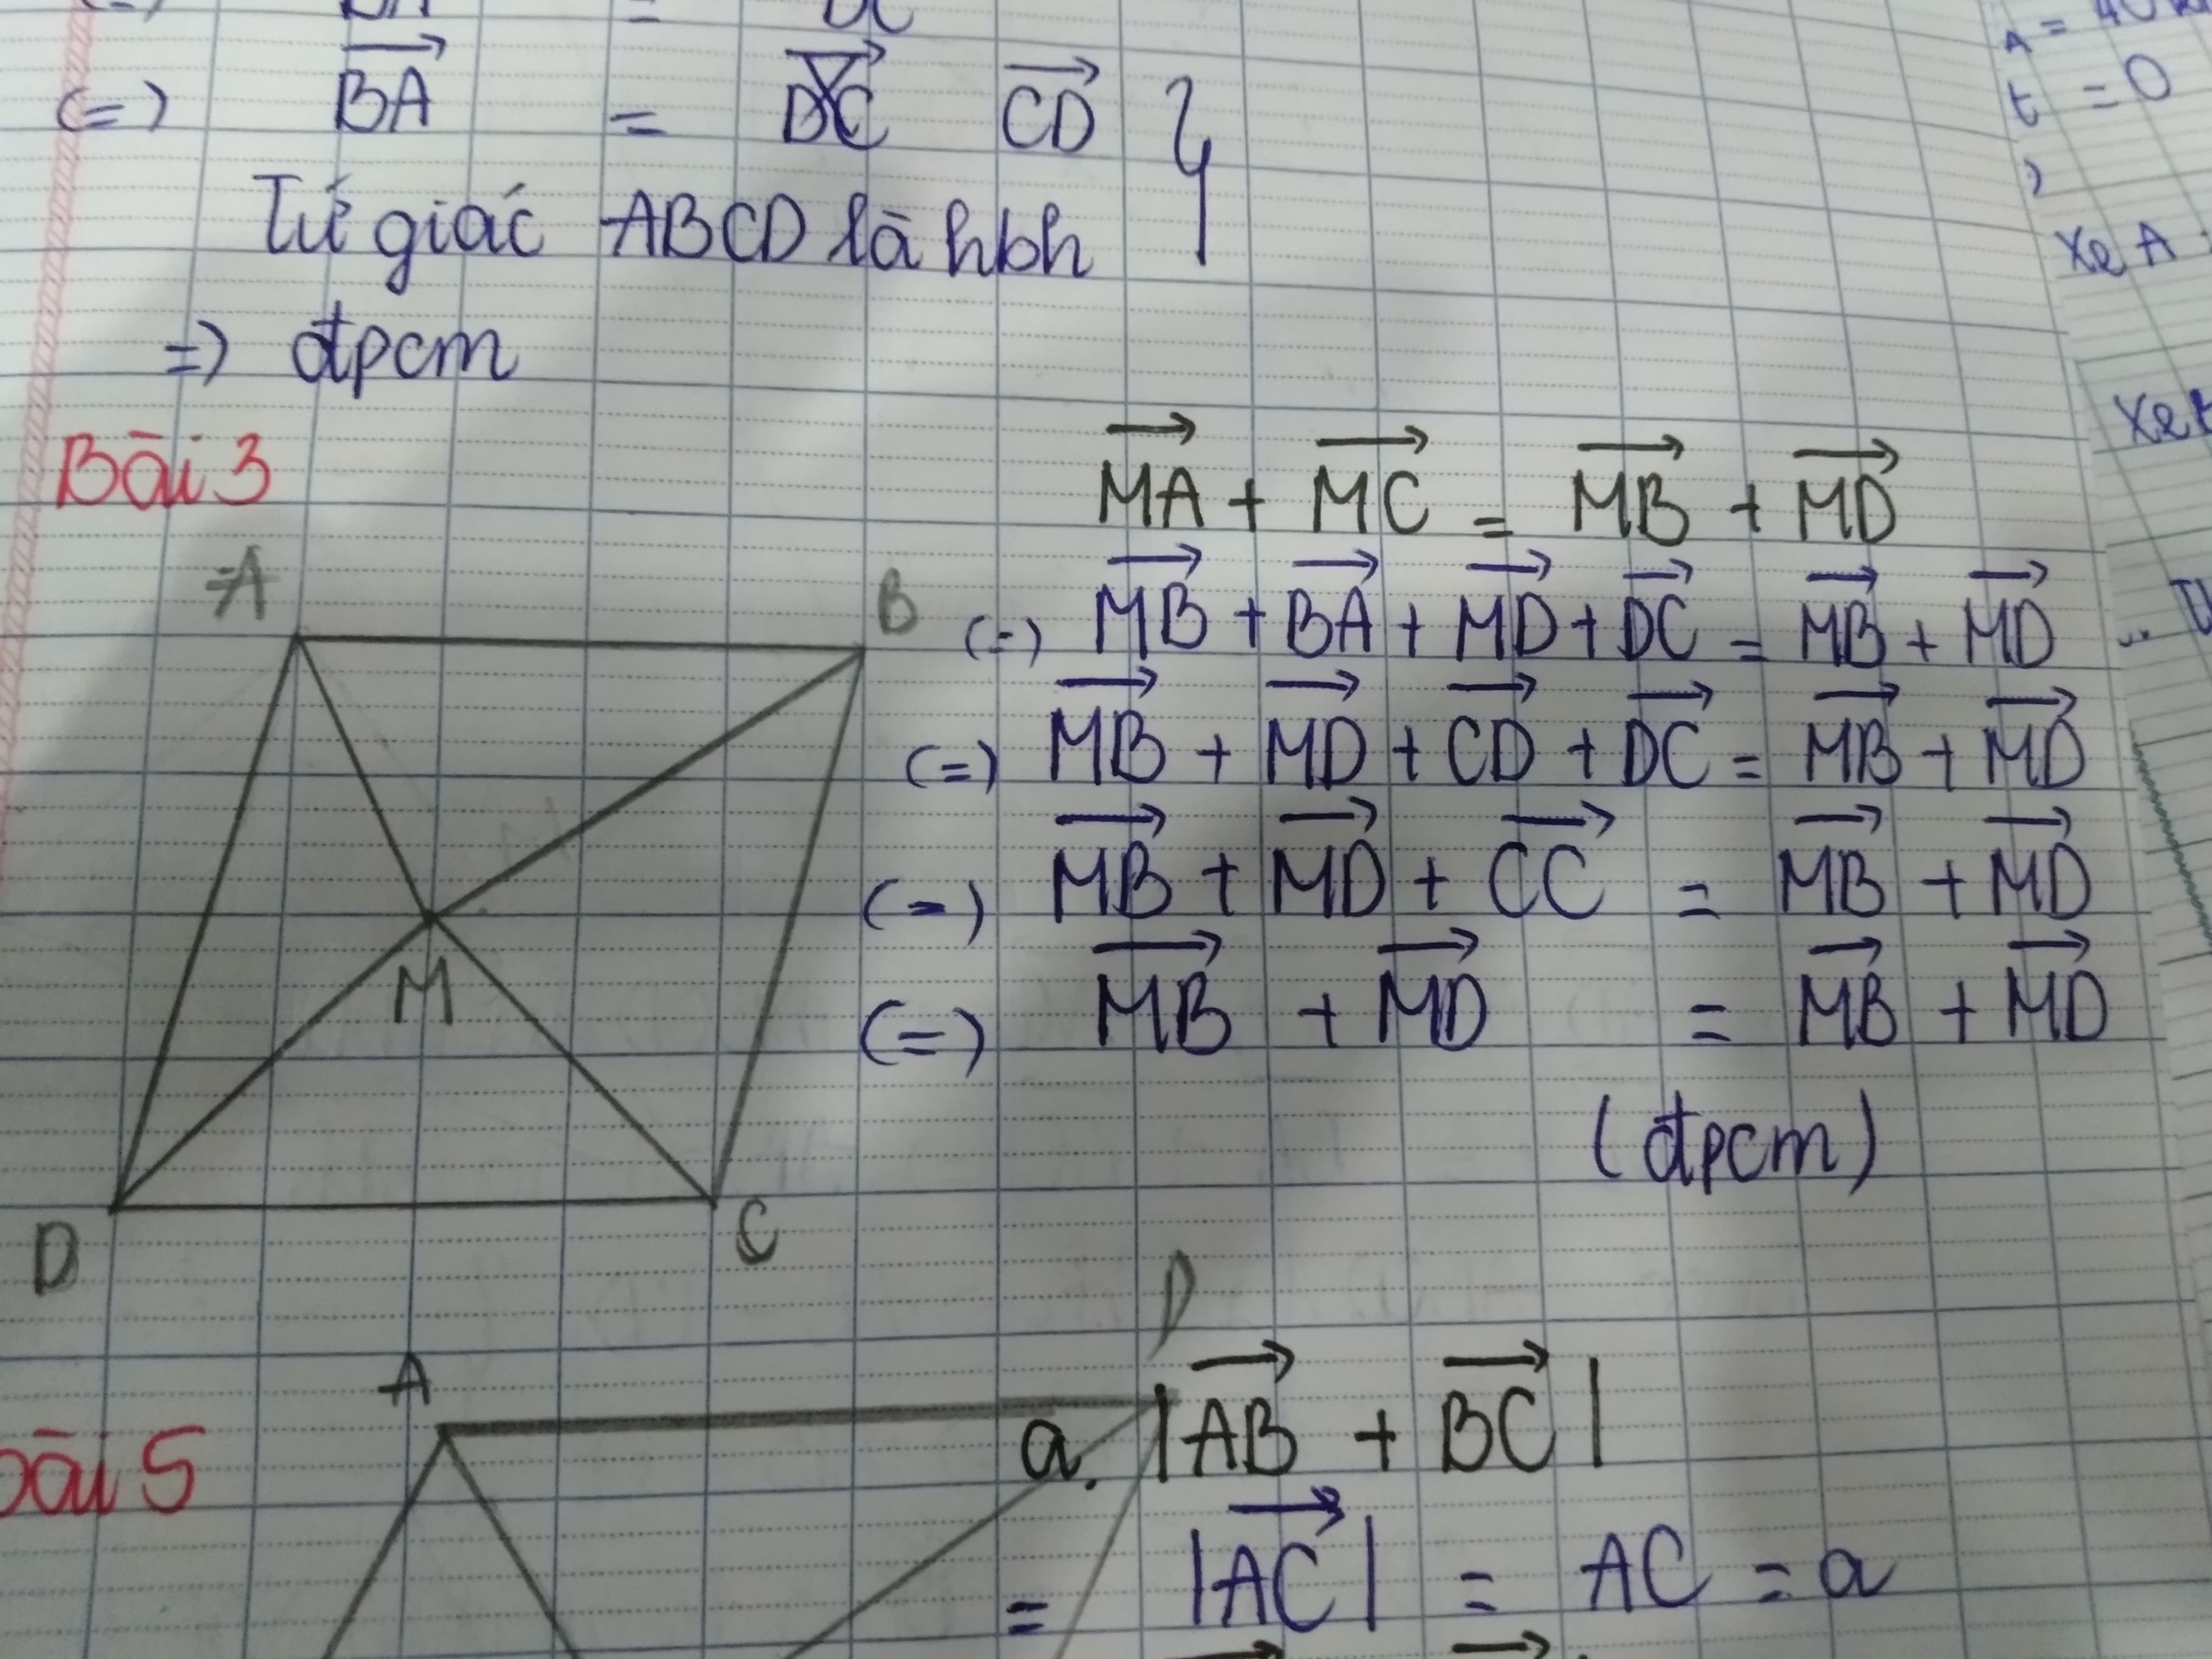 (=) BA = DC
(=) BA = CD }
Tứ giác ABCD là hbh
=) đpcm
Bài 3
MA + MC = MB + MD
A B
(=) MB + BA + MD + DC = MB + MD
(=) MB + MD + CD + DC = MB + MD
(=) MB + MD + CC = MB + MD
M
(=) MB + MD = MB + MD
(đpcm)
D C
A D
Bài 5
a. |AB + BC|
= |AC| = AC = a
t = 0
Xe A